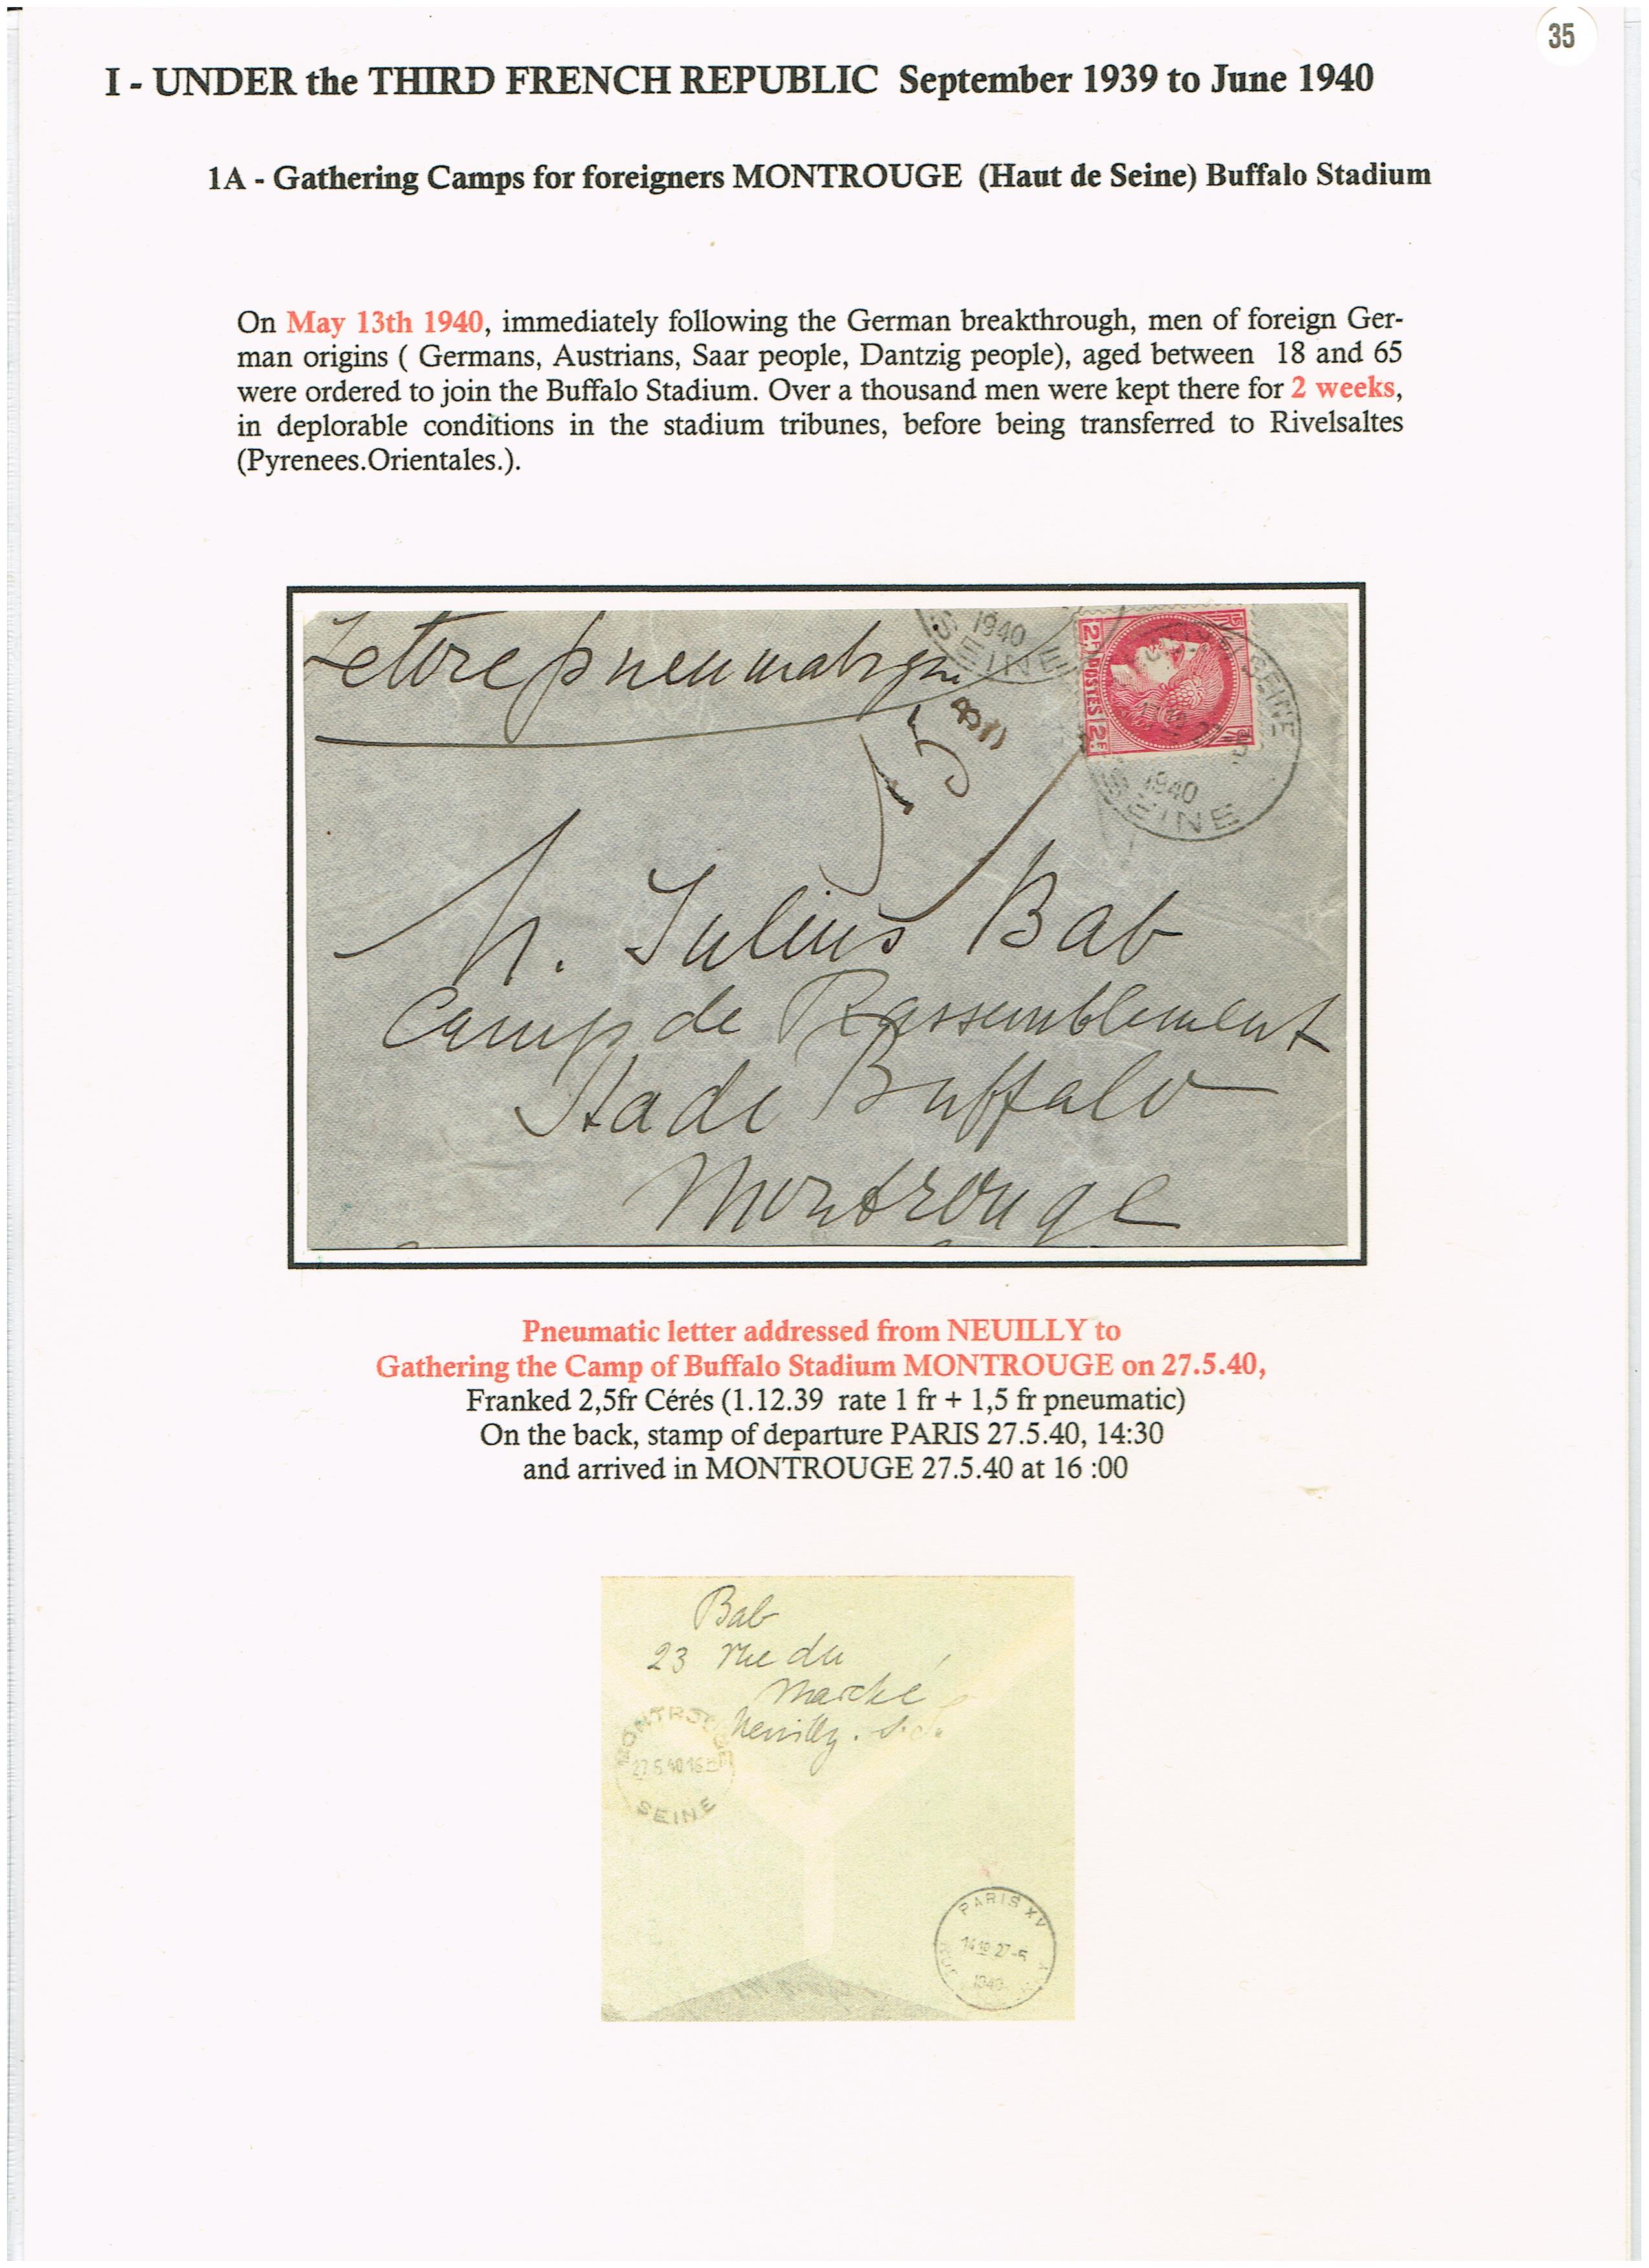 35
I - UNDER the THIRD FRENCH REPUBLIC September 1939 to June 1940
1A - Gathering Camps for foreigners MONTROUGE (Haut de Seine) Buffalo Stadium
On May 13th 1940, immediately following the German breakthrough, men of foreign Ger-
man origins ( Germans, Austrians, Saar people, Dantzig people), aged between 18 and 65
were ordered to join the Buffalo Stadium. Over a thousand men were kept there for 2 weeks,
in deplorable conditions in the stadium tribunes, before being transferred to Rivelsaltes
(Pyrenees.Orientales.).
Lettre pneumatique
1940
SEINE
2F POSTES 2F
SEINE
1940
SEINE
M. Julius Bab
Camp de Rassemblement
Stade Buffalo
Montrouge
Pneumatic letter addressed from NEUILLY to
Gathering the Camp of Buffalo Stadium MONTROUGE on 27.5.40,
Franked 2,5fr Cérés (1.12.39 rate 1 fr + 1,5 fr pneumatic)
On the back, stamp of departure PARIS 27.5.40, 14:30
and arrived in MONTROUGE 27.5.40 at 16 :00
Bab
23 rue du
Marché
Neuilly . s.S.
MONTROUGE
27.5.40 16
SEINE
PARIS XV
27-5
1940